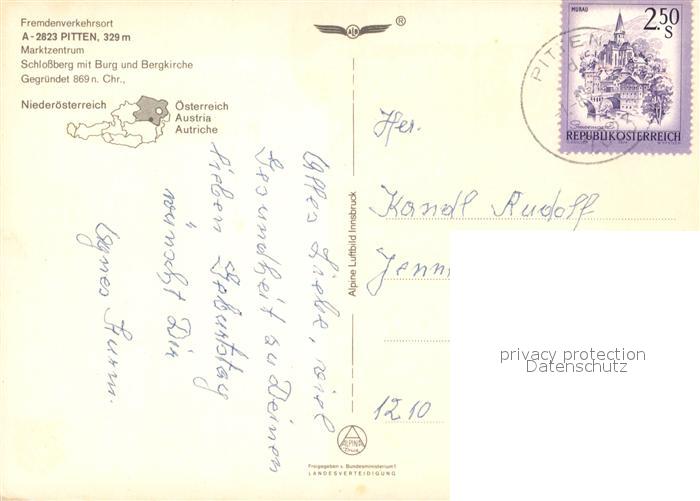 Fremdenverkehrsort
A-2823 PITTEN, 329 m
Marktzentrum
Schloßberg mit Burg und Bergkirche
Gegründet 869 n. Chr.,
Niederösterreich
Österreich
Austria
Autriche
Alles Liebe, viel
Gesundheit zu Deinem
lieben Geburtstag
wünscht Dir
Agnes Sturm.
Alpine Luftbild Innsbruck
®
ALPINA
Druck
Freigegeben v. Bundesministerium f.
LANDESVERTEIDIGUNG
MURAU
2.50
S
REPUBLIK ÖSTERREICH
PITTEN
Her.
Kandl Rudolf
Jenn
1210
privacy protection
Datenschutz